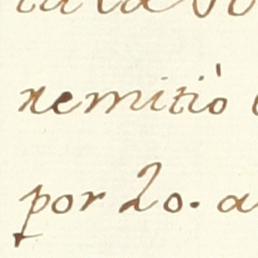 remitiò
por 20. a